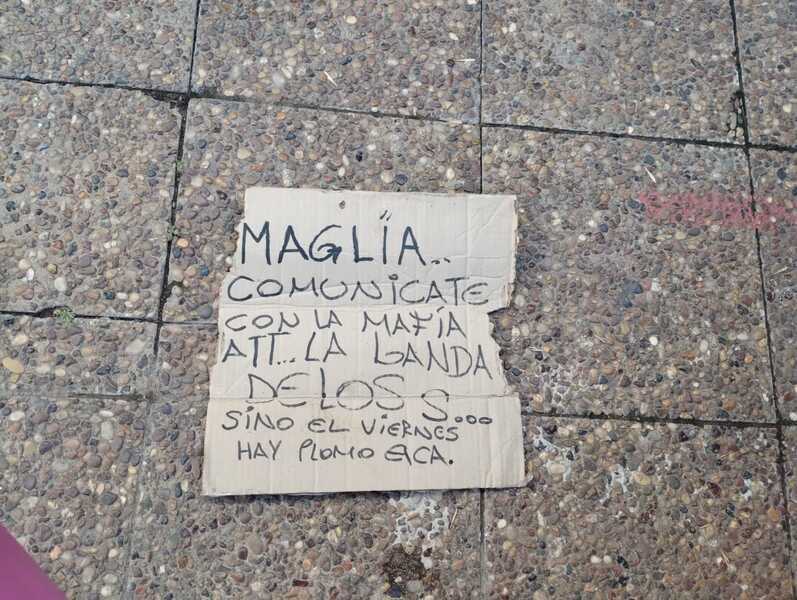 MAGLIA..
COMUNICATE
CON LA MAFIA
ATT...LA BANDA
DE LOS S...
SINO EL VIERNES
HAY PLOMO ACA.